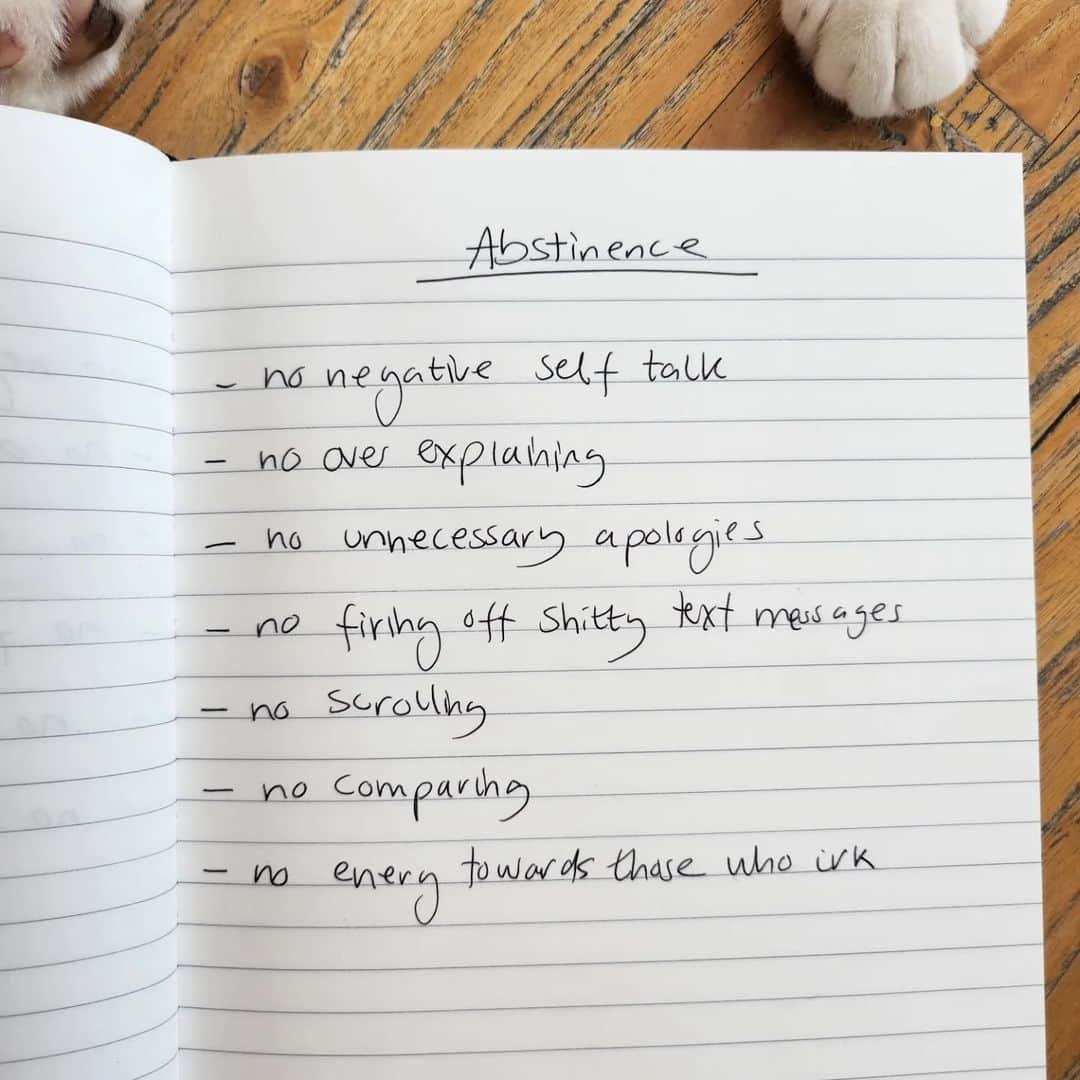 Abstinence
- no negative self talk
- no over explaining
- no unnecessary apologies
- no firing off shitty text messages
- no scrolling
- no comparing
- no energy towards those who irk